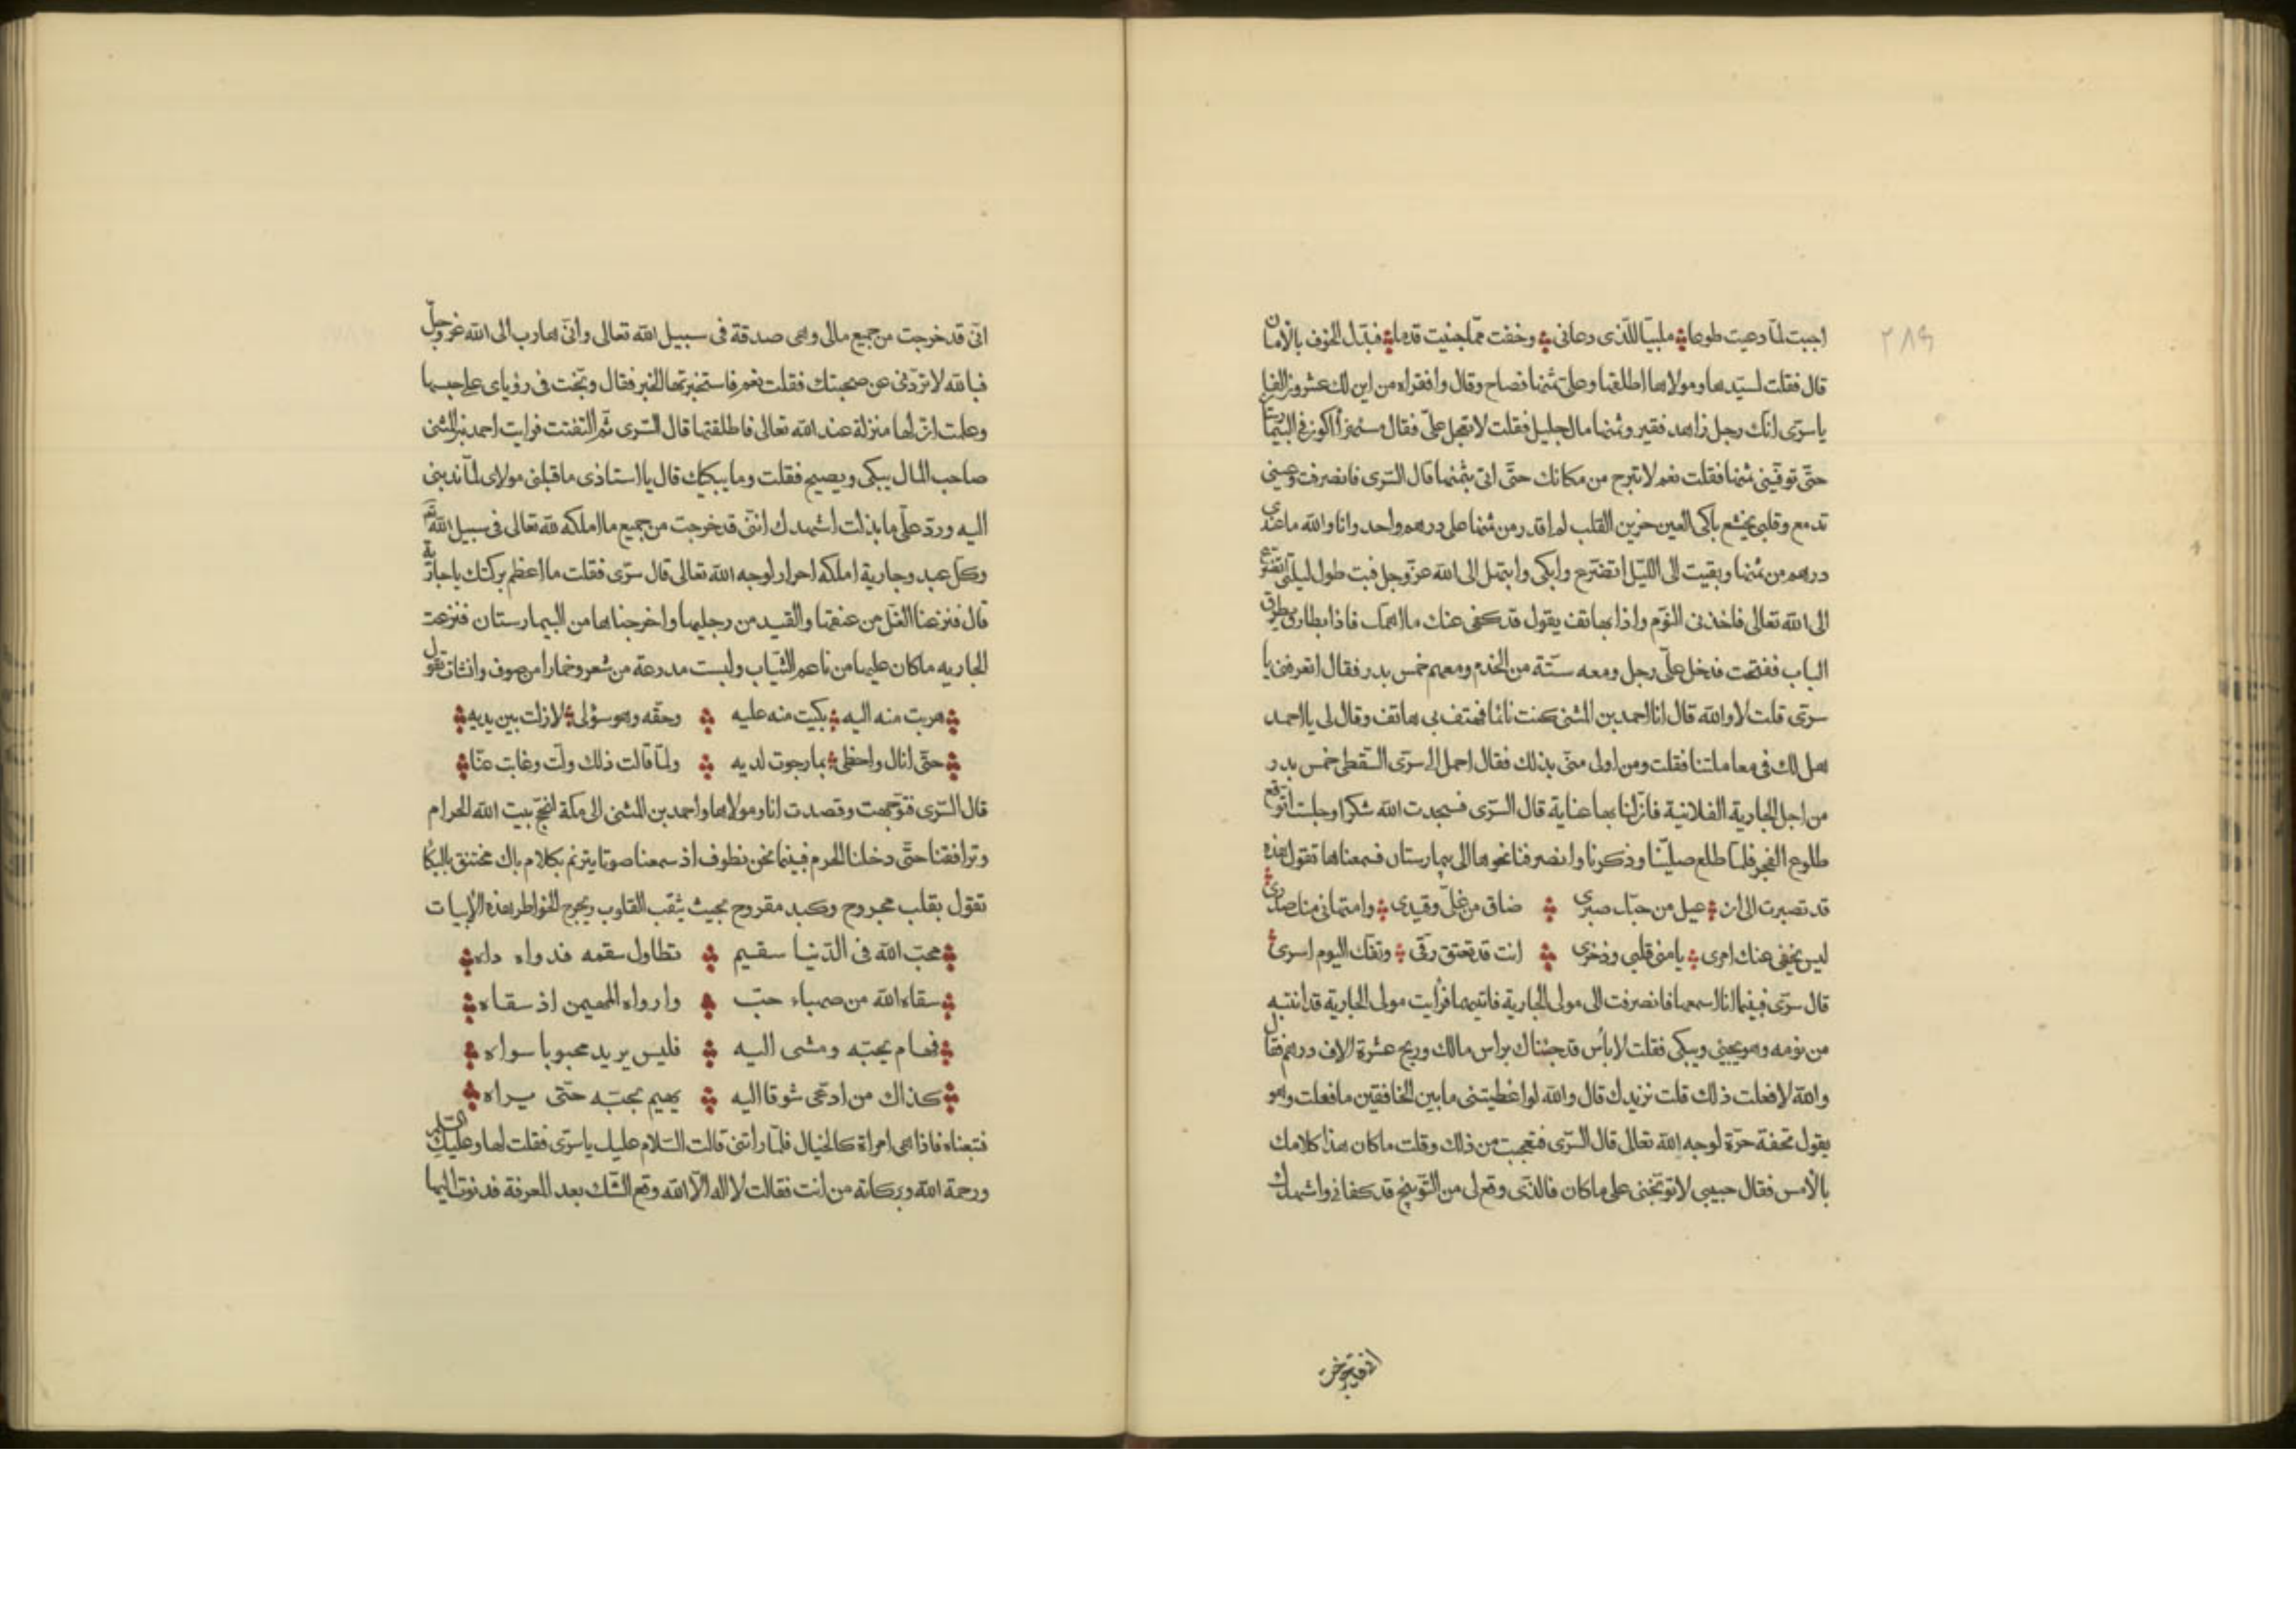 ٢٨٩
اجبت لمّا دعيت طوعا ملبيّا للّذى دعانى وخفت ممّا جنيت قدما فبدّل الخوف بالأمان
قال فقلت لسيّدها ومولاها اطلقها وعلىّ ثمنها فصاح وقال وافقراه من اين لك عشرون الفا
ياسرّى انّك رجل زاهد فقير وثمنها مال جليل فقلت لا تعجل علىّ فقال اكون فى البيمارستان
حتّى توفّينى ثمنها فقلت نعم لا تبرح من مكانك حتّى اتى بثمنها قال السّرى فانصرفت وعينى
تدمع وقلبى يخشع باكى العين حزين القلب لم اقدر من ثمنها على درهم واحد وانا والله ما عندى
درهم من ثمنها وبقيت الى اللّيل اتضرّع وابكى وابتهل الى الله عزّ وجل فبت طول ليلتى اتضرّع
الى الله تعالى فاخذنى النّوم واذا بهاتف يقول قد كفى عنك ما اهمّك فاذا بطارق يطرق
الباب ففتحت فدخل علىّ رجل ومعه ستّة من الخدم ومعهم خمس بدر فقال اتعرفنى يا
سرّى قلت لا والله قال انا احمد بن المثنى كنت نائما فهتف بى هاتف وقال لى يا احمد
هل لك فى معاملتنا فقلت ومن اولى منّى بذلك فقال احمل الى سرّى السّقطى خمس بدر
من اجل الجارية الفلانية فانّ لنا بها عناية قال السّرى فسجدت الله شكرا وجلست اتوقّع
طلوع الفجر فلمّا طلع صلّينا وذكرنا وانصرفنا نحوها الى بيمارستان فسمعناها تقول هذه
قد تصبرت الى ان عيل من حبّك صبرى ضاق من غلّى وقيدى وامتهانى منك صدرى
ليس يخفى عنك امرى يا منى قلبى وذخرى انت قد تعتق رقّى وتفكّ اليوم اسرى
قال سرّى فبينما انا اسمعها فانصرفت الى مولى الجارية فاتيها فرأيت مولى الجارية قد انتبه
من نومه وهو يجيئ ويبكى فقلت لا بأس قد جئناك براس مالك وربح عشرة الاف درهم فقال
والله لا فعلت ذلك قلت نزيدك قال والله لو اعطيتنى ما بين الخافقين ما فعلت وهو
يقول تحفة حرّة لوجه الله تعالى قال السّرى فتعجبت من ذلك وقلت ما كان هذا كلامك
بالأمس فقال حبيبى لا توبّخنى على ما كان فالّذى وقع لى من التّوبيخ قد كفانى واشهدك
انى قد خرجت
انّى قد خرجت من جميع مالى وهى صدقة فى سبيل الله تعالى وانّى هارب الى الله عزّ وجلّ
فبالله لا تردّنى عن صحبتك فقلت نعم فاستخبرتها الخبر فقال وبّخت فى رؤياى على حبسها
وعلمت انّ لها منزلة عند الله تعالى فاطلقتها قال السّرى ثمّ التفتت فرايت احمد بن المثنى
صاحب المال يبكى ويصيح فقلت وما يبكيك قال يا استاذى ما قبلنى مولاى لمّا ندبنى
اليه وردّ علّى ما بذلت اشهدك انّنى قد خرجت من جميع ما املكه لله تعالى فى سبيل الله
وكلّ عبد وجارية املكه احرار لوجه الله تعالى قال سرّى فقلت ما اعظم بركتك يا جارية
قال فنزعنا الغلّ من عنقها والقيد من رجليها واخرجناها من البيمارستان فنزعت
الجاريه ما كان عليها من ناعم الثّياب ولبست مدرعة من شعر وخمارا من صوف وانشات تقول
هربت منه اليه بكيت منه عليه وحقّه وهو سؤلى لا زلت بين يديه
حتّى انال واحظى بما رجوت لديه ولمّا قالت ذلك ولّت وغابت عنّا
قال السّرى فتوجّهت وقصدت انا ومولاها واحمد بن المثنى الى مكّة لنحجّ بيت الله الحرام
وترافقنا حتّى دخلنا الحرم فبينما نحن نطوف اذ سمعنا صوتا يترنم بكلام باك مختنق بالبكا
تقول بقلب مجروح وكبد مقروح بحيث يثقب القلوب ويجرح الخواطر بهذه الأبيات
محبّ الله فى الدّنيا سقيم تطاول سقمه فدواه داه
سقاه الله من صهباء حبّ وارواه المهيمن اذ سقاه
فهام بحبّه ومشى اليه فليس يريد محبوبا سواه
كذاك من ادعى شوقا اليه يهيم بحبّه حتّى يراه
فتبعناه فاذا هى امراة كالخيال فلمّا راتنى قالت السّلام عليك ياسرّى فقلت لها وعليك السّلام
ورحمة الله وبركاته من انت فقالت لا اله الّا الله وقع الشّك بعد المعرفة فدنوت اليها